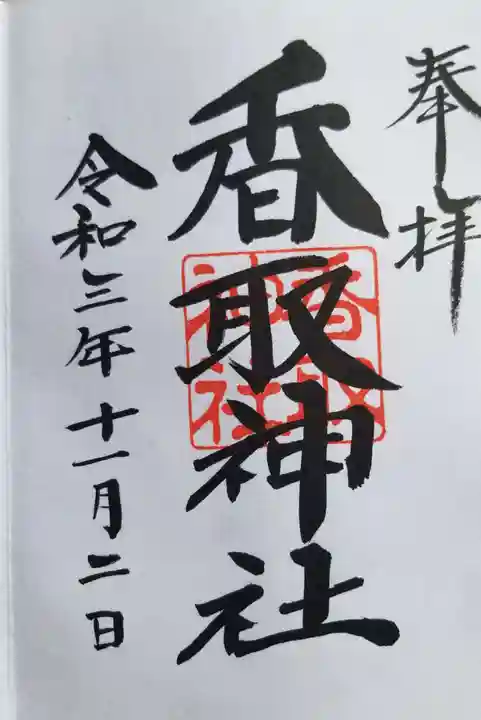 奉拝
香取神社
香取神社
令和三年十一月二日